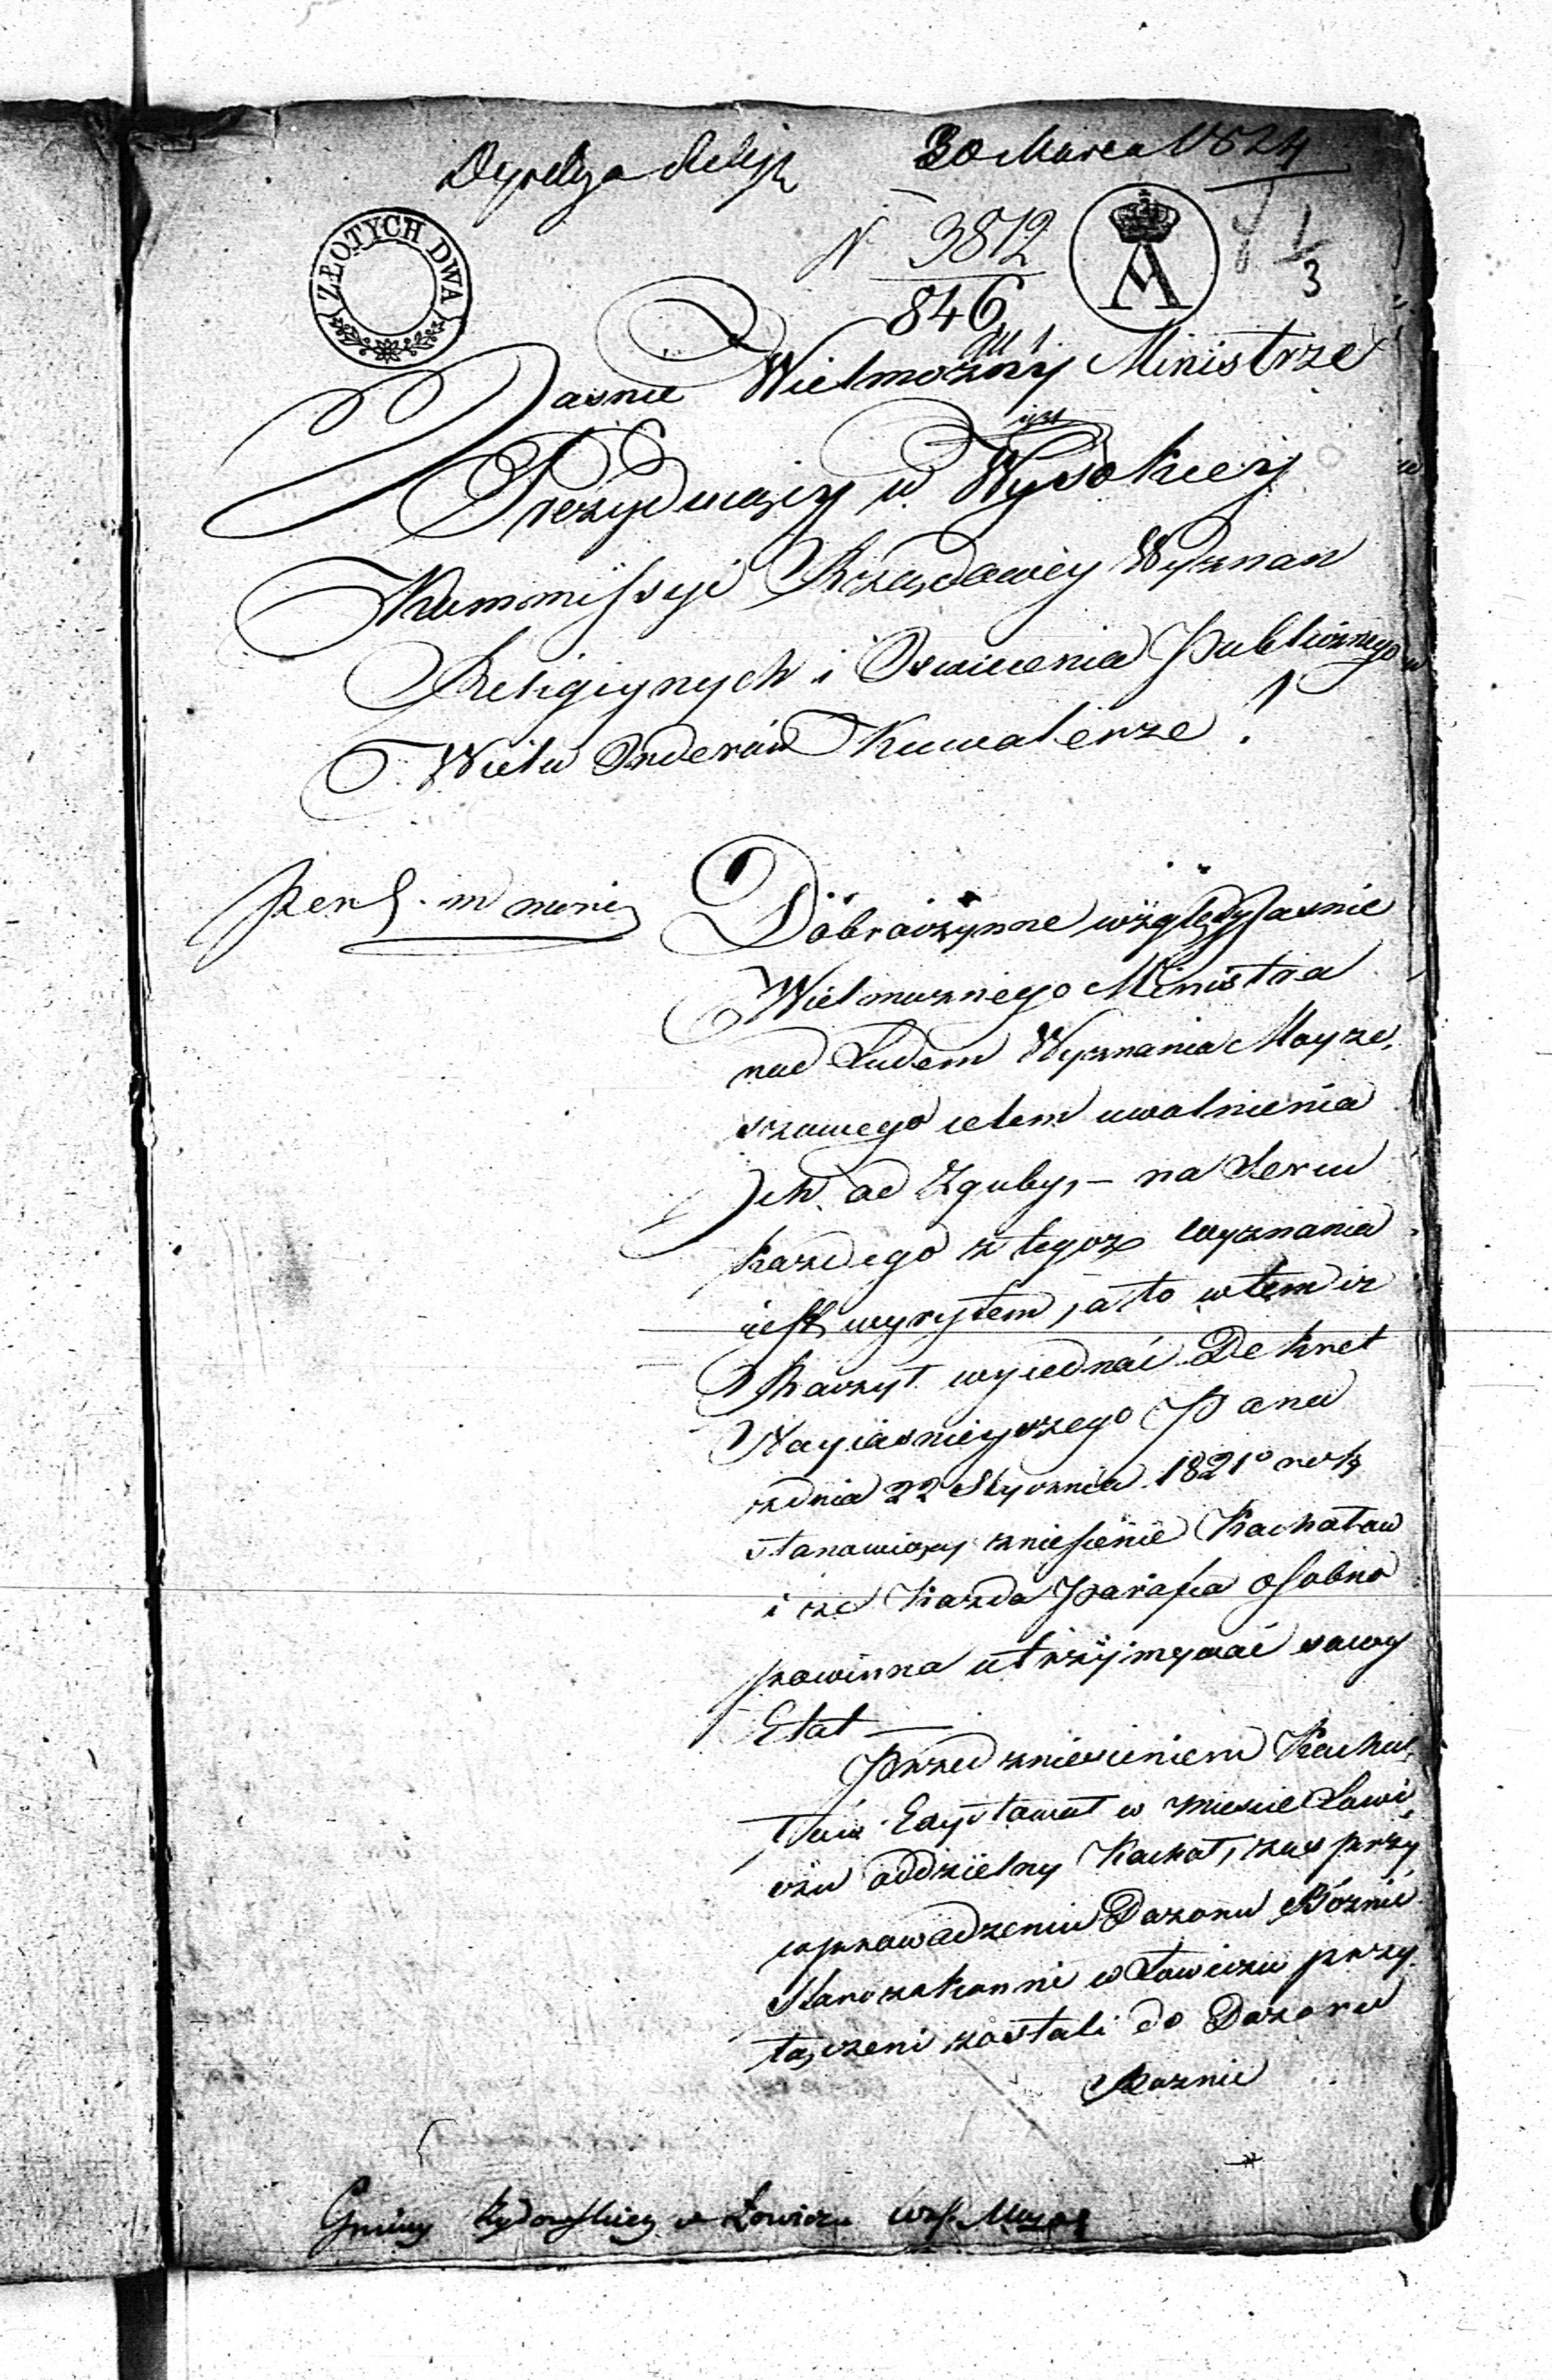 30 Marca 1824
ZŁOTYCH DWA
N 3812
846
1/3
A
Jasnie Wielmożny Ministrze
Prezyduiący w Wysokiey
Kommissyi Rządowey Wyznan
Religiynych i Oswiecenia Publicznego
Wielu Orderów Kawalerze!
Dobroczynne względy Jasnie
Wielmoznego Ministra
nad Ludem Wyznania Mayze,
szowego celem uwolnienia
Ich od Zguby, – na Sercu
kazdego z tegoz wyznania
iest wyrytem, a to w tem iz
Raczył wyiednać Dekret
Nayiasnieyszego Pana
z dnia 22 Stycznia 1821º
stanowiący zniesienie Kachałow
i ze Kazda Parafia osobno
powinna utrzymywać swoy
Etat —
Przed zniesieniem Kachał,
łów Exystował w miescie Łowi
czu oddzielny Kachał, zas przy
wprowadzeniu Dozoru Bóżnic
Starozakonni w Łowiczu przy
łączeni zostali do Dozoru
Boznic
Gminy Żydowskiey w Łowiczu